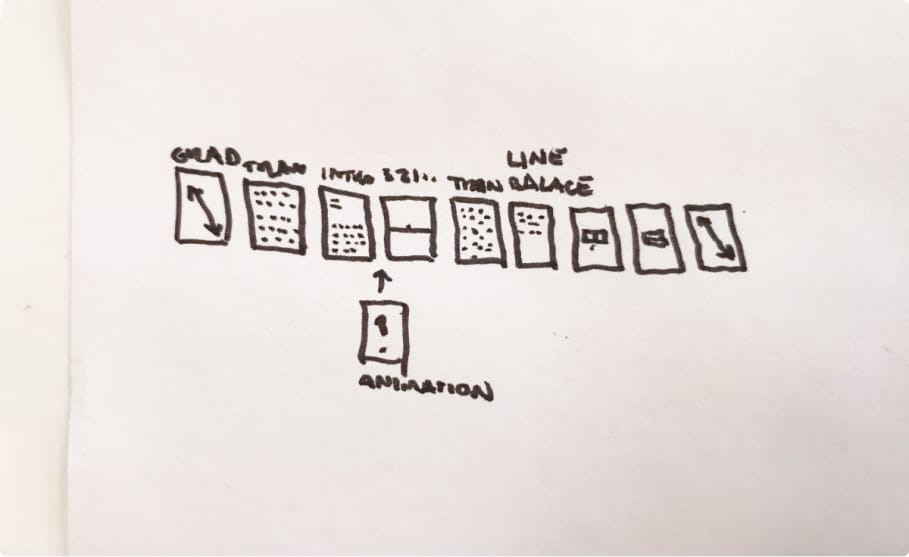 GRAD TRAN INTRO 321.. TRAN LINE
BALACE
ANIMATION